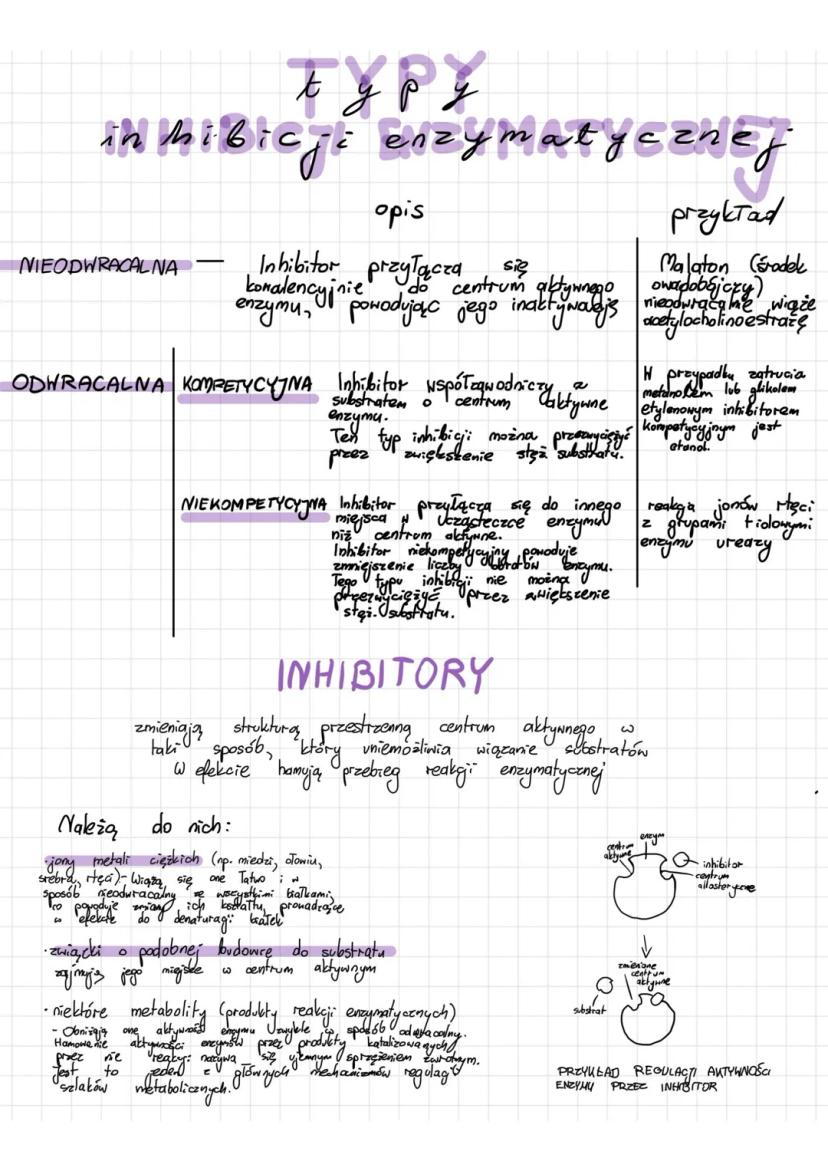 typy
inhibicji enzymatycznej
opis
przykład
NIEODWRACALNA —
Inhibitor przyłącza się
kowalencyjnie do centrum aktywnego
enzymu, powodując jego inaktywację
Malation (środek
owadobójczy)
nieodwracalnie wiąże
acetylocholinoestrazę
ODWRACALNA
KOMPETYCYJNA
Inhibitor współzawodniczy z
substratem o centrum aktywne
enzymu.
Ten typ inhibicji można przezwyciężyć
przez zwiększenie stęż substratu.
W przypadku zatrucia
metanolem lub glikolem
etylenowym inhibitorem
kompetycyjnym jest
etanol.
NIEKOMPETYCYJNA
Inhibitor przyłącza się do innego
miejsca w cząsteczce enzymu
niż centrum aktywne.
Inhibitor niekompetycyjny powoduje
zmniejszenie liczby obrotów enzymu.
Tego typu inhibicji nie można
przezwyciężyć przez zwiększenie
stęż. substratu.
reakcja jonów rtęci
z grupami tiolowymi
enzymu ureazy
INHIBITORY
zmieniają strukturą przestrzenną centrum aktywnego w
taki sposób, który uniemożliwia wiązanie substratów
W efekcie hamują przebieg reakcji enzymatycznej
Należą do nich:
·jony metali ciężkich (np. miedzi, ołowiu,
srebra, rtęci)- Wiążą się one łatwo i w
sposób nieodwracalny ze wszystkimi białkami,
co powoduje zmiany ich kształtu, prowadzące
w efekcie do denaturacji białek
·związki o podobnej budowce do substratu
zajmują jego miejsce w centrum aktywnym
· niektóre metabolity (produkty reakcji enzymatycznych)
- Obniżają one aktywność enzymu zwykle w sposób odwracalny.
Hamowanie aktywności enzymów przez produkty katalizowanych
przez nie reakcji nazywa się ujemnym sprzężeniem zwrotnym.
Jest to jeden z głównych mechanizmów regulacji
szlaków metabolicznych.
enzym
centrum
aktywne
inhibitor
centrum
allosteryczne
zmienione
centrum
aktywne
substrat
PRZYKŁAD REGULACJI AKTYWNOŚCI
ENZYMU PRZEZ INHIBITOR